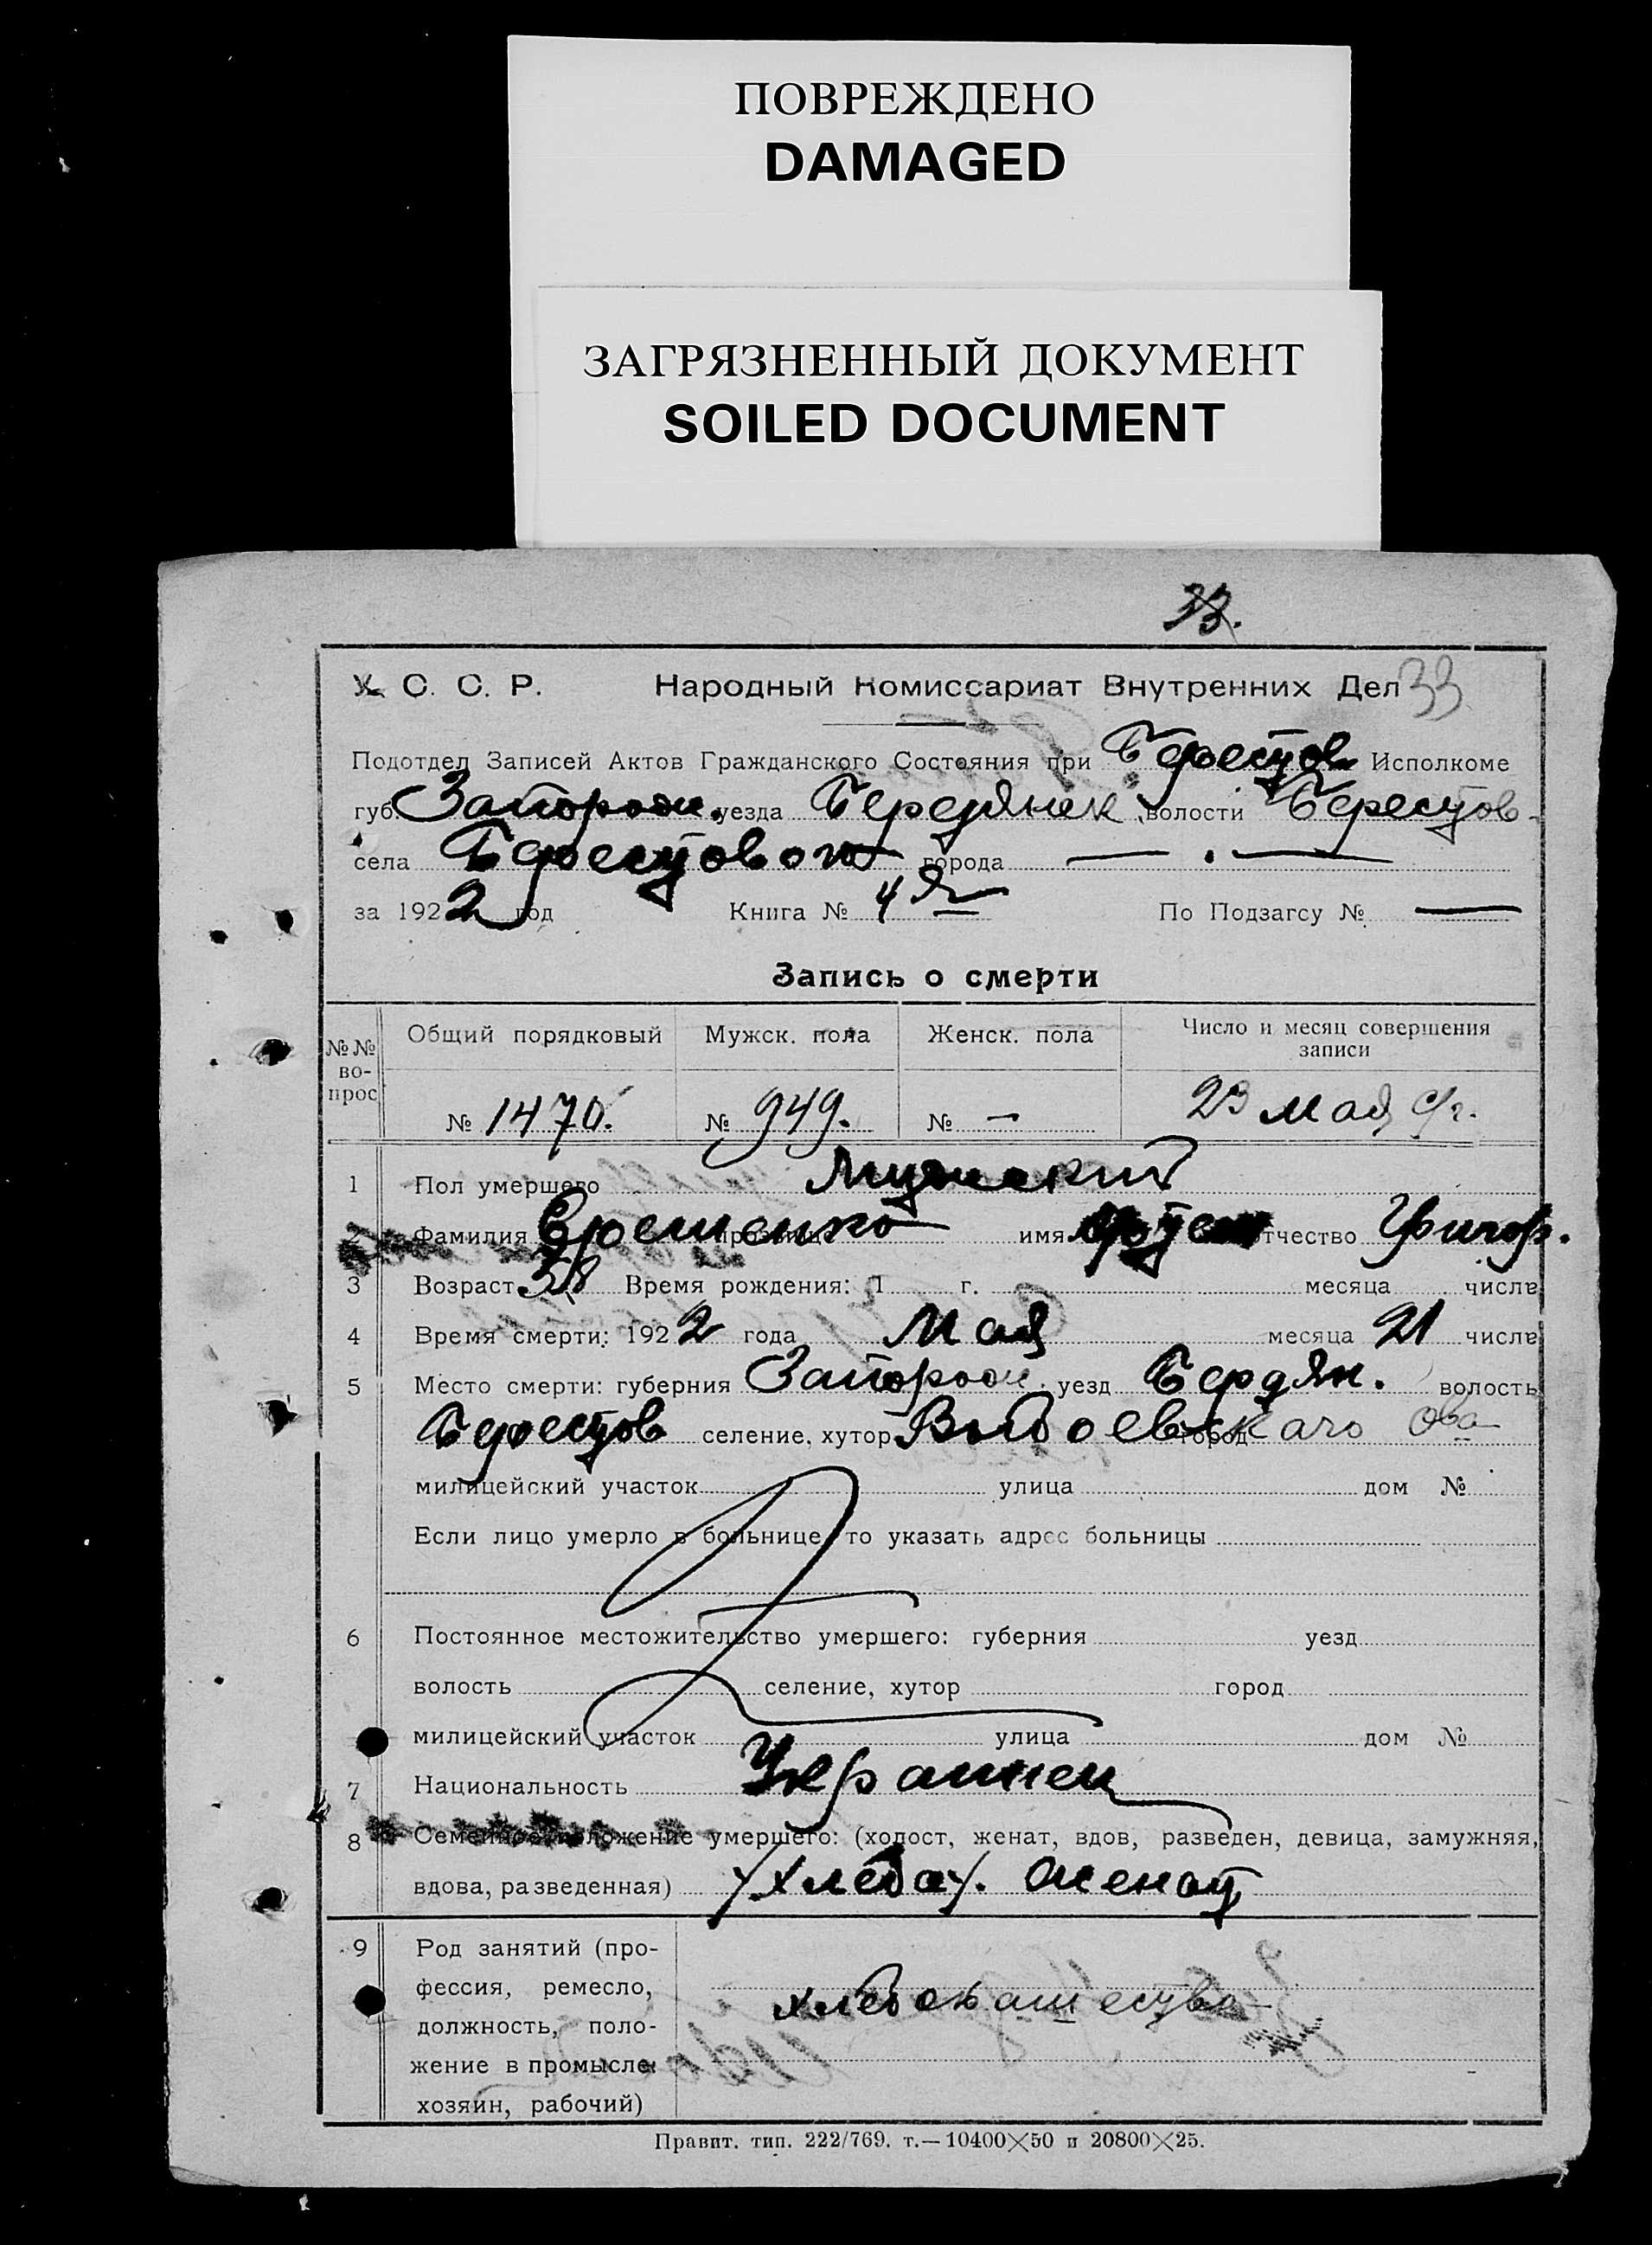 ПОВРЕЖДЕНО
DAMAGED
ЗАГРЯЗНЕННЫЙ ДОКУМЕНТ
SOILED DOCUMENT
33.
У. С. С. Р. Народный Комиссариат Внутренних Дел 33
Подотдел Записей Актов Гражданского Состояния при Берестов Исполкоме
губ. Запорож. уезда Бердянск волости Берестов-
села Берестовое города — . —
за 1922 год Книга № 4 По Подзагсу № —
Запись о смерти
№№ во-прос Общий порядковый Мужск. пола Женск. пола Число и месяц совершения записи
№ 1470. № 949. № — 23 мая с/г.
1 Пол умершего Мужский
2 Фамилия Еременко прозвище имя отчество
3 Возраст 38 Время рождения: 1 г. месяца числа
4 Время смерти: 1922 года Мая месяца 21 числа
5 Место смерти: губерния Запорож. уезд Бердян. волость
Берестов селение, хутор город ова
милицейский участок улица дом №
Если лицо умерло в больнице, то указать адрес больницы
6 Постоянное местожительство умершего: губерния уезд
волость селение, хутор город
милицейский участок улица дом №
7 Национальность Украинец
8 Семейное положение умершего: (холост, женат, вдов, разведен, девица, замужняя,
вдова, разведенная) /хлеба/. женат
9 Род занятий (про-
фессия, ремесло,
хлебопашество
должность, поло-
жение в промысле:
хозяин, рабочий)
Правит. тип. 222/769. т.—10400×50 и 20800×25.